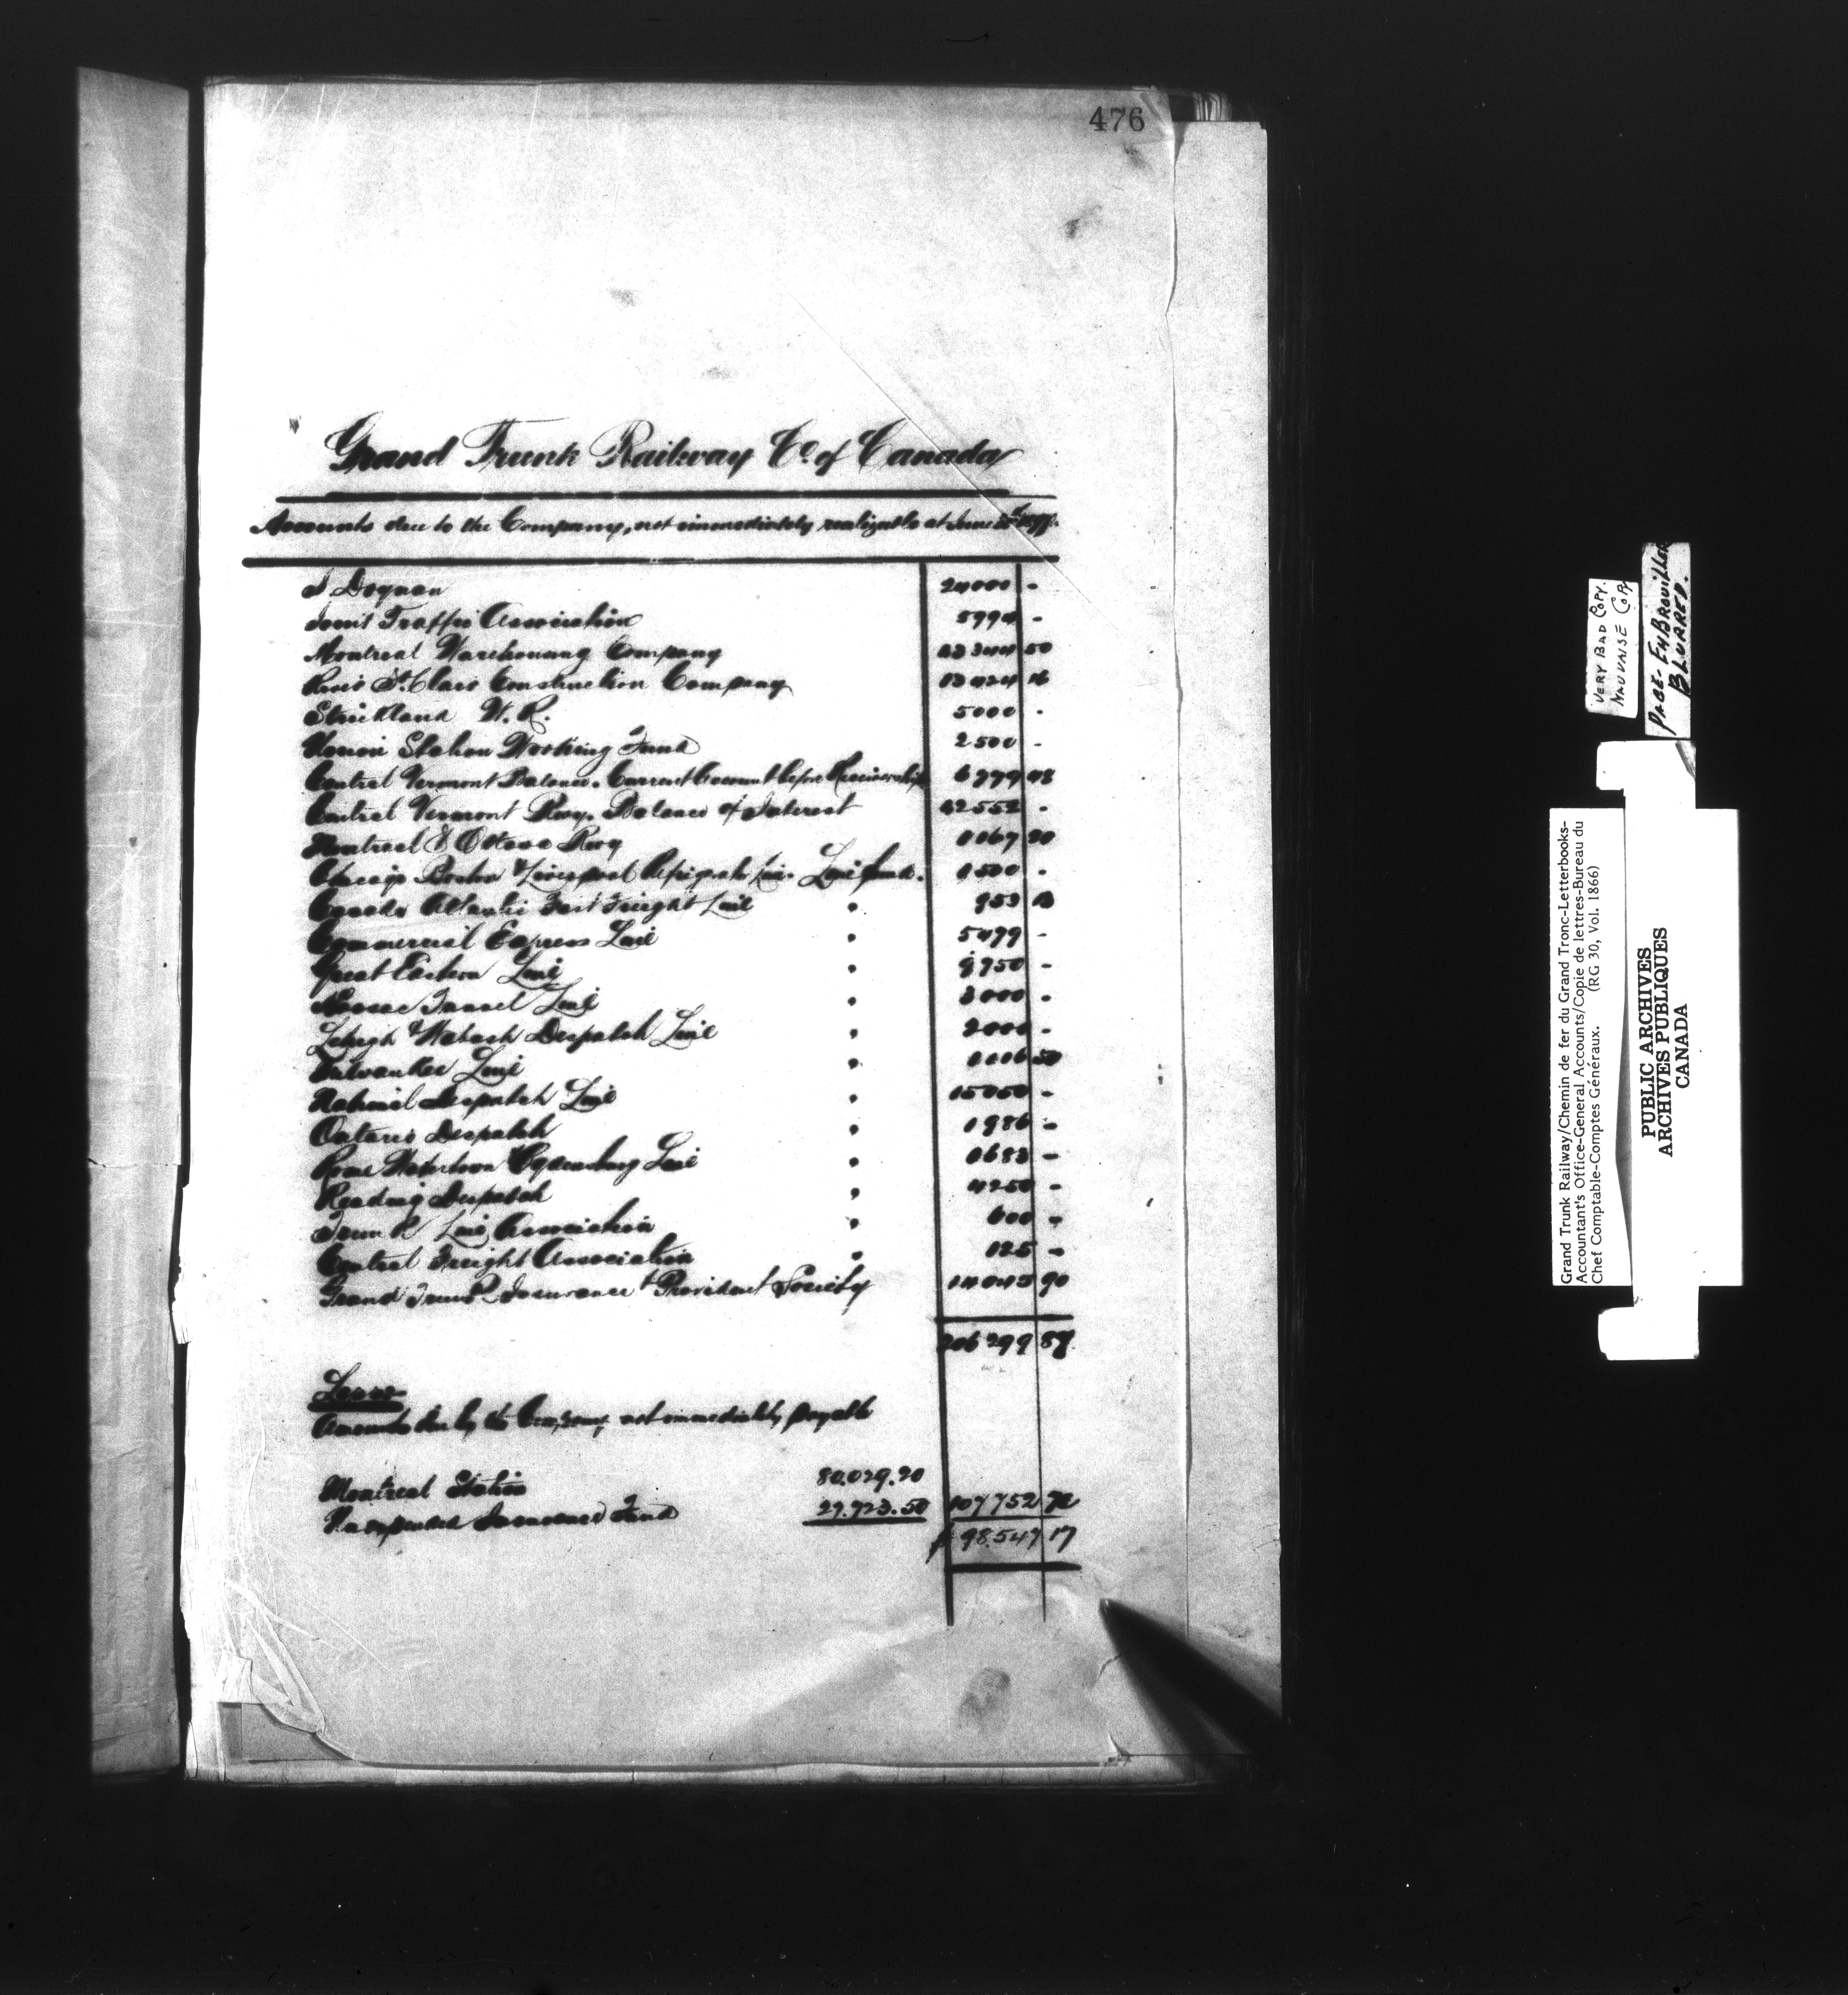 476
Grand Trunk Railway Co. of Canada
Accounts due to the Company, not immediately realizable at June 30th 1897.
24000 -
Joint Traffic Association 5994 -
Montreal Warehousing Company 50
River St. Clair Construction Company 13424 16
Strickland W. R. 5000 -
Union Station Working Fund 2500 -
Central Vermont Balance. Current Account before Receivership 48
Central Vermont Rwy. Balance of Interest 42552 -
Montreal & Ottawa Rwy
Chicago Boston & Liverpool Refrigerator Line. Line fund. 1500 -
Canada Atlantic Fast Freight Line " 953 13
Commercial Express Line " 5479 -
Great Eastern Line " 9750 -
Hoosac Tunnel Line " 3000 -
Lehigh & Wabash Despatch Line " 2000 -
Milwaukee Line " 50
National Despatch Line " 15050 -
Ontario Despatch " 1986 -
Rome Watertown & Ogdensburg Line " 1683 -
Reading Despatch " 4250 -
Trunk Line Association " 600 -
Central Freight Association " 125 -
Grand Trunk Insurance & Provident Society 14045 90
206299 89
Less
Accounts due by the Company not immediately payable
Montreal Station 80.029.20
Unexpended Insurance Fund 27.723.50 107752 72
$ 98.547 17
VERY BAD COPY.
MAUVAISE COPY
PAGE-EMBROUILLÉE
BLURRED.
Grand Trunk Railway/Chemin de fer du Grand Tronc-Letterbooks-
Accountant's Office-General Accounts/Copie de lettres-Bureau du
Chef Comptable-Comptes Généraux. (RG 30, Vol. 1866)
PUBLIC ARCHIVES
ARCHIVES PUBLIQUES
CANADA